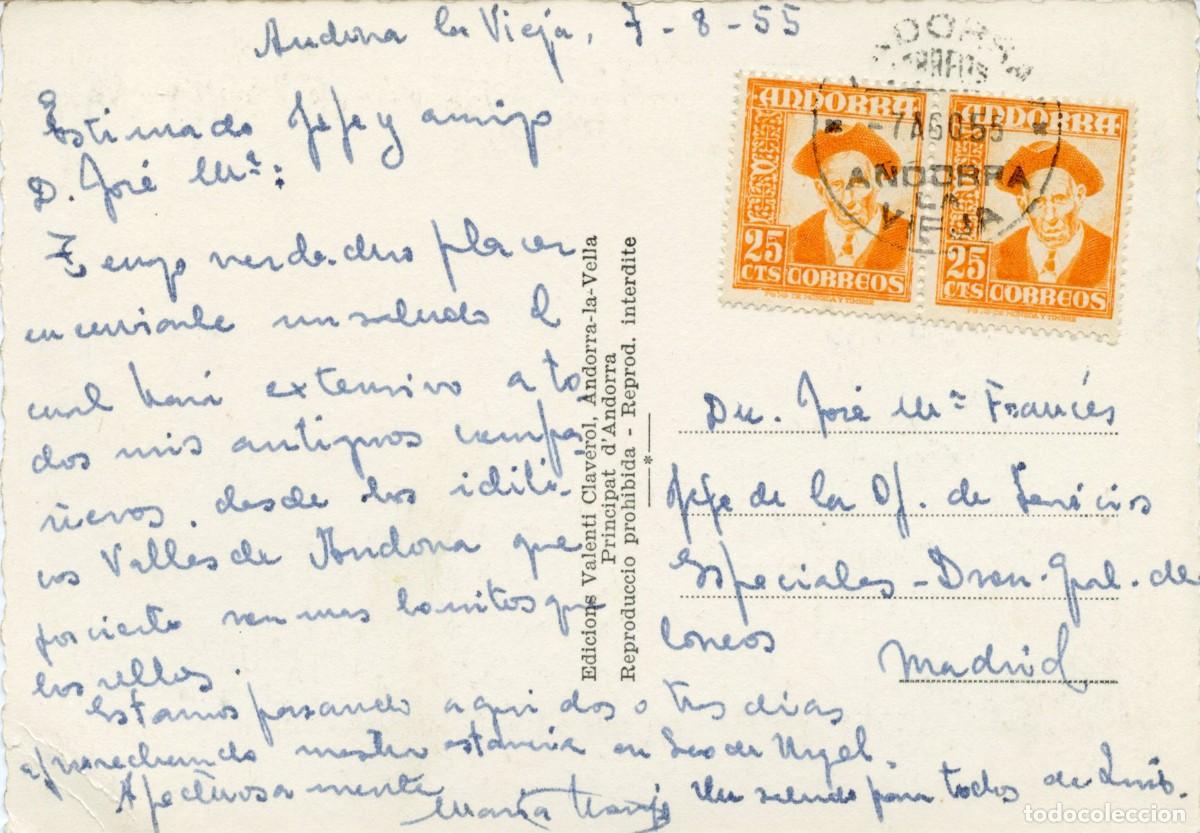 Andorra la Vieja, 7-8-55
Estimado Jefe y amigo
D. José Mª:
Tengo verdadero placer
en enviarle un saludo el
cual hará extensivo a to
dos mis antiguos compa-
ñeros, desde los idíli-
cos Valles de Andorra que
por cierto son mas bonitos que
los sellos.
Estamos pasando aqui dos o tres dias
aprovechando nuestra estancia en Seo de Urgel.
Afectuosamente
Maria
Un saludo para todos de Luis.
Edicions Valenti Claverol, Andorra-la-Vella
Principat d'Andorra
Reproduccio prohibida - Reprod. interdite
ANDORRA
CORREOS
-7 AGO 55
ANDORRA
LA
VIEJA
ANDORRA
25
CTS CORREOS
ANDORRA
25
CTS CORREOS
Dn. José Mª Francés
Jefe de la Of. de Servicios
Especiales - Dron. Gral. de
Correos
Madrid
todocoleccion